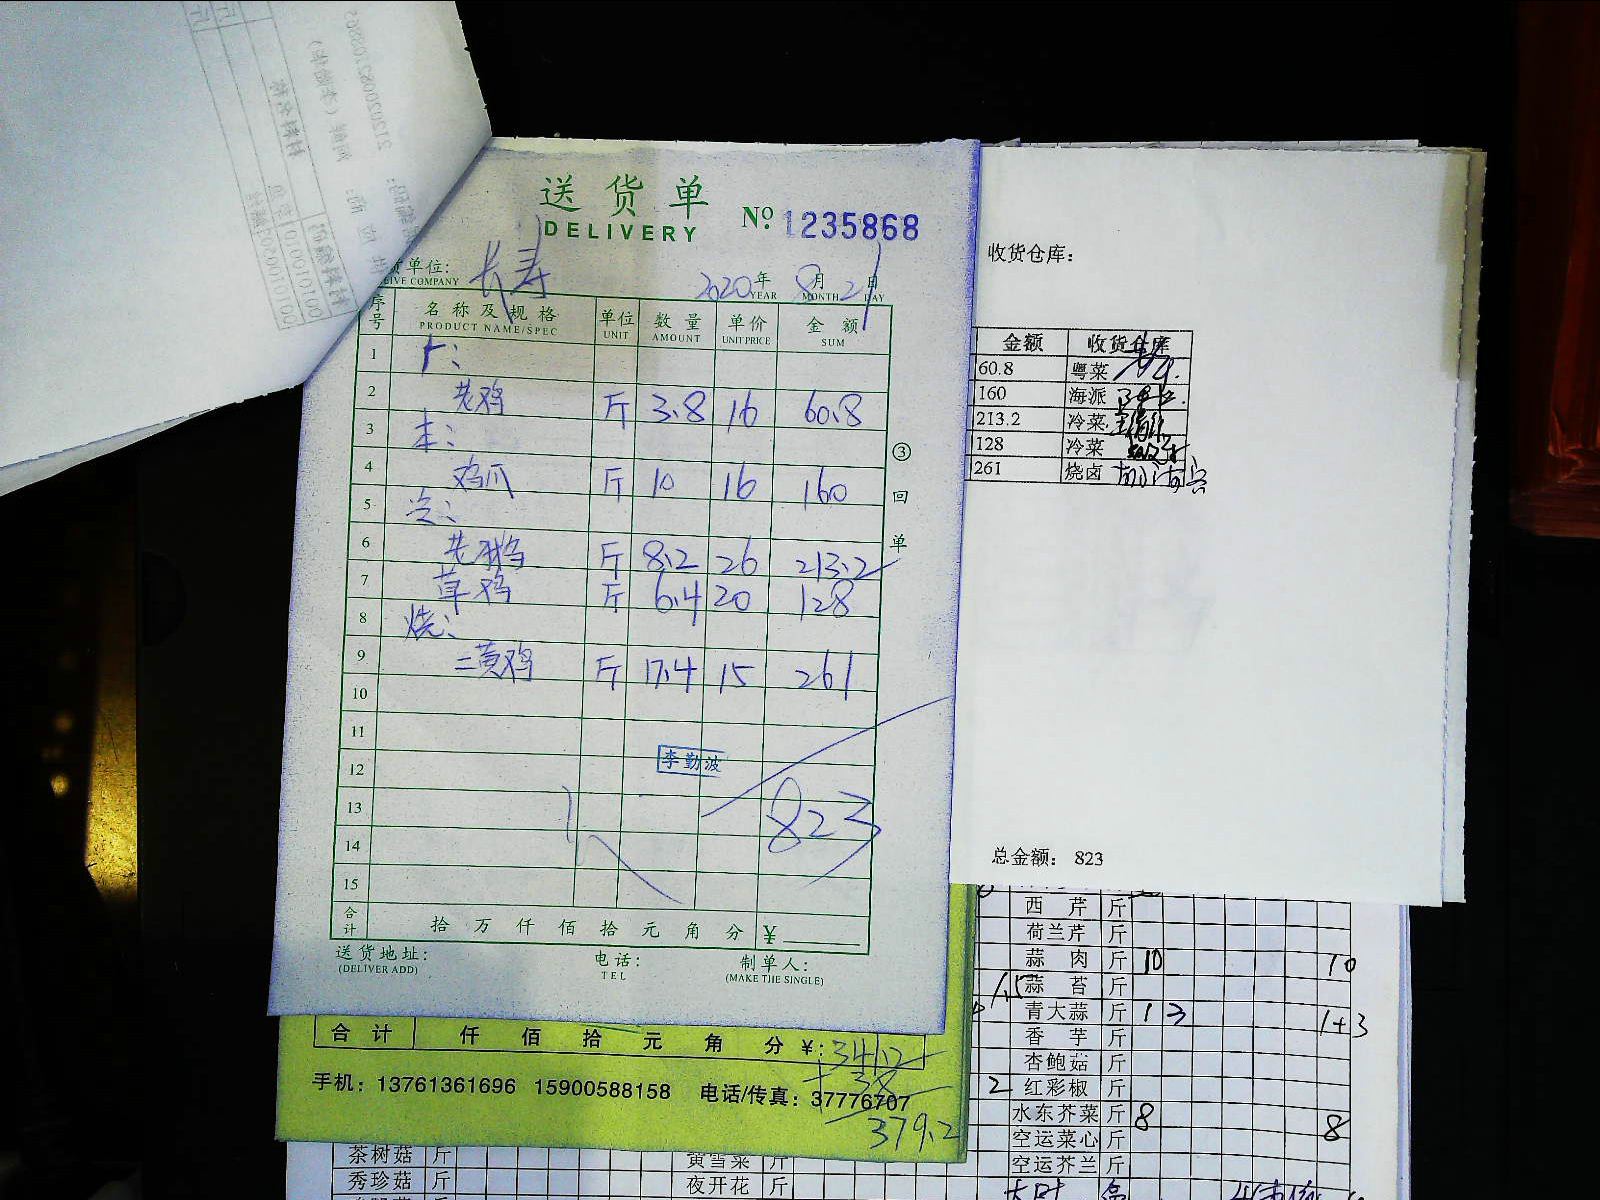 送货单
DELIVERY
№ 1235868
货单位: 长寿
COMPANY
2020年 8月 21日
YEAR MONTH DAY
序号 名称及规格 单位 数量 单价 金额
PRODUCT NAME/SPEC UNIT AMOUNT UNIT PRICE SUM
1
2 老鸡 斤 3.8 16 60.8
3 本:
4 鸡爪 斤 10 16 160
5
6 老鹅 斤 8.2 26 213.2
7 草鸡 斤 6.4 20 128
8 烧:
9 三黄鸡 斤 17.4 15 261
10
11
李勤波
12
13 823
14
15
合计 拾 万 仟 佰 拾 元 角 分 ¥
送货地址: 电话: 制单人:
(DELIVER ADD) TEL (MAKE THE SINGLE)
③回单
收货仓库:
金额 收货仓库
60.8 粤菜
160 海派
213.2 冷菜
128 冷菜
261 烧卤
总金额: 823
合计 仟 佰 拾 元 角 分 ¥: 341.2
+38
手机: 13761361696 15900588158 电话/传真: 37776707
379.2
西芹 斤
荷兰芹 斤
蒜肉 斤 10 10
1.5 蒜苔 斤
青大蒜 斤 1 3 1+3
香芋 斤
杏鲍菇 斤
2 红彩椒 斤
水东芥菜 斤 8 8
空运菜心 斤
空运芥兰 斤
茶树菇 斤 黄雪菜 斤
秀珍菇 斤 夜开花 斤